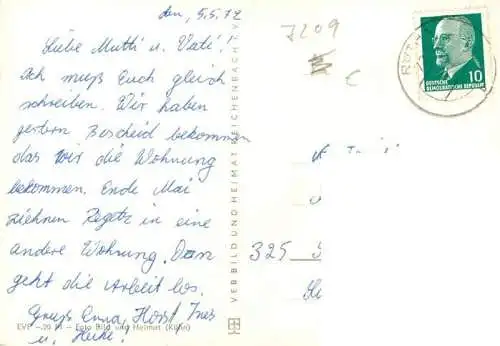 den, 5.5.72
Liebe Mutti u. Vati!
Ich muß Euch gleich
schreiben. Wir haben
gestern Bescheid bekommen
das wir die Wohnung
bekommen. Ende Mai
ziehnen Regetz in eine
andere Wohnung. Dann
geht die Arbeit los.
Gruß Anna, Horst Ines
u. Heike!
EVP –.20 M – Foto Bild und Heimat
VEB BILD UND HEIMAT REICHENBACH
7209
C
325
DEUTSCHE
DEMOKRATISCHE REPUBLIK
10